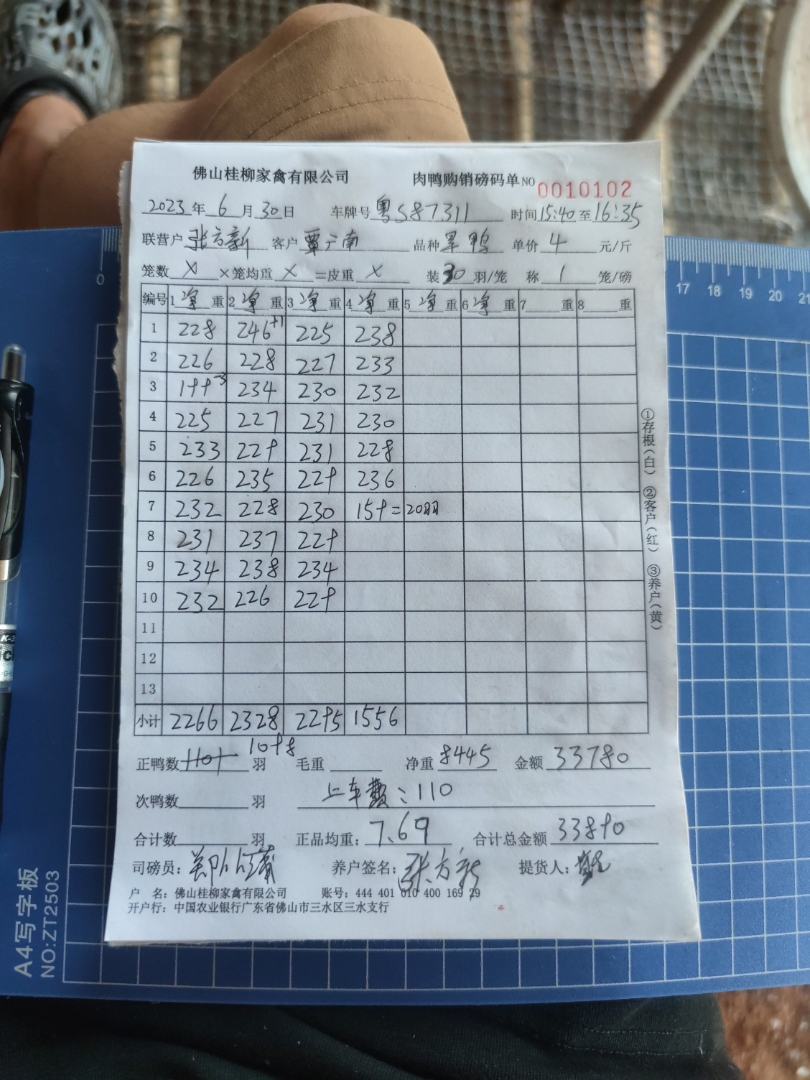 佛山桂柳家禽有限公司 肉鸭购销磅码单NO 0010102
2023年 6 月 30日 车牌号 粤S87311 时间 15:40 至 16:35
联营户 张方新 客户 覃广南 品种 旱鸭 单价 4 元/斤
笼数 × ×笼均重 × =皮重 × 装 30 羽/笼 称 1 笼/磅
编号 1 净 重 2 净 重 3 净 重 4 净 重 5 净 重 6 净 重 7 重 8 重
1 228 246+1 225 238
2 226 228 227 233
3 199-3 234 230 232
4 225 227 231 230
5 233 229 231 228
6 226 235 229 236
7 232 228 230 159=20羽
8 231 237 229
9 234 238 234
10 232 226 229
11
12
13
小计 2266 2328 2295 1556
正鸭数 1101 1098 羽 毛重 净重 8445 金额 33780
次鸭数 羽 上车费:110
合计数 羽 正品均重: 7.69 合计总金额 33890
司磅员: 养户签名: 张方新 提货人:
户 名: 佛山桂柳家禽有限公司 账号: 444 401 010 400 169 29
开户行: 中国农业银行广东省佛山市三水区三水支行
①存根(白) ②客户(红) ③养户(黄)
A4写字板
NO:ZT2503
0 17 18 19 20 21